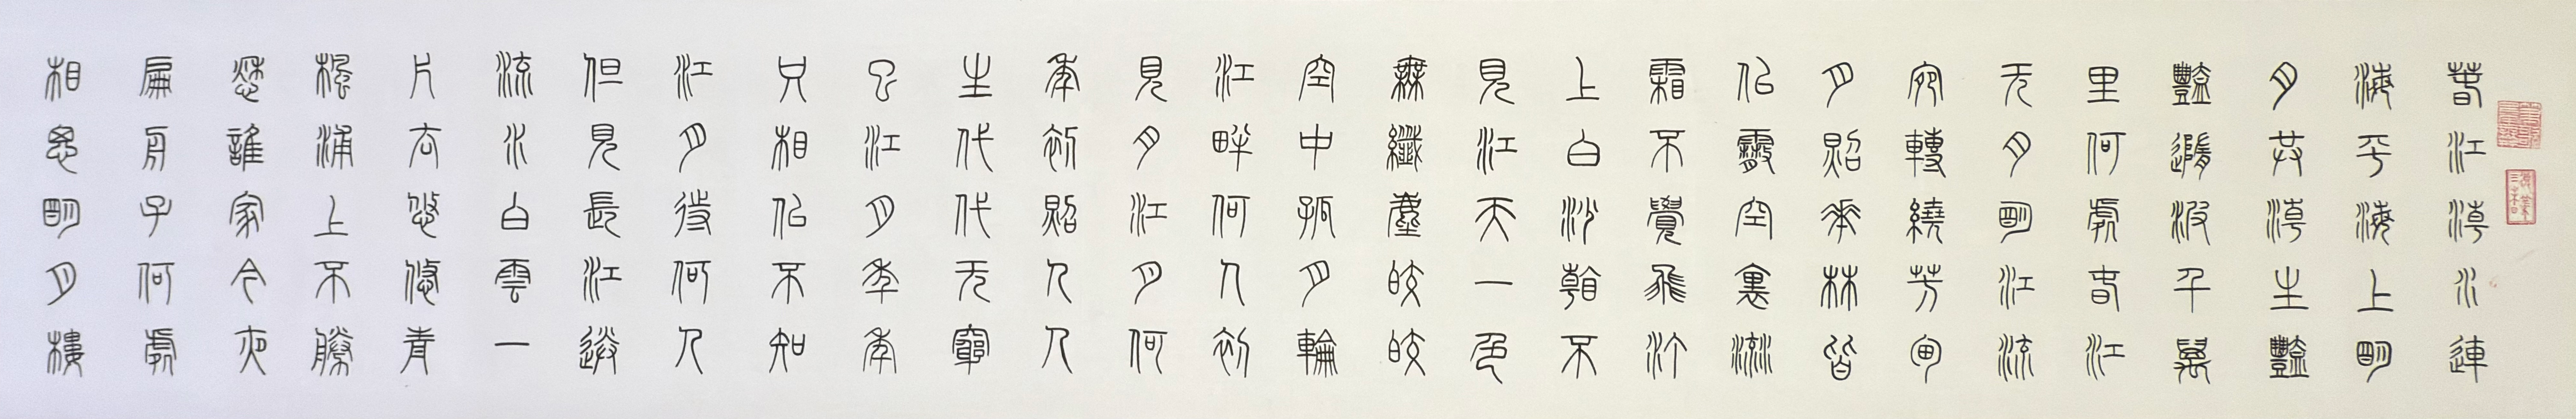 春江潮水連
海平海上明
月共潮生灩
灩隨波千萬
里何處春江
无月明江流
宛轉繞芳甸
月照花林皆
似霰空裏流
霜不覺飛汀
上白沙看不
見江天一色
無纖塵皎皎
空中孤月輪
江畔何人初
見月江月何
年初照人人
生代代无窮
已江月年年
只相似不知
江月待何人
但見長江送
流水白雲一
片去悠悠青
楓浦上不勝
愁誰家今夜
扁舟子何處
相思明月樓